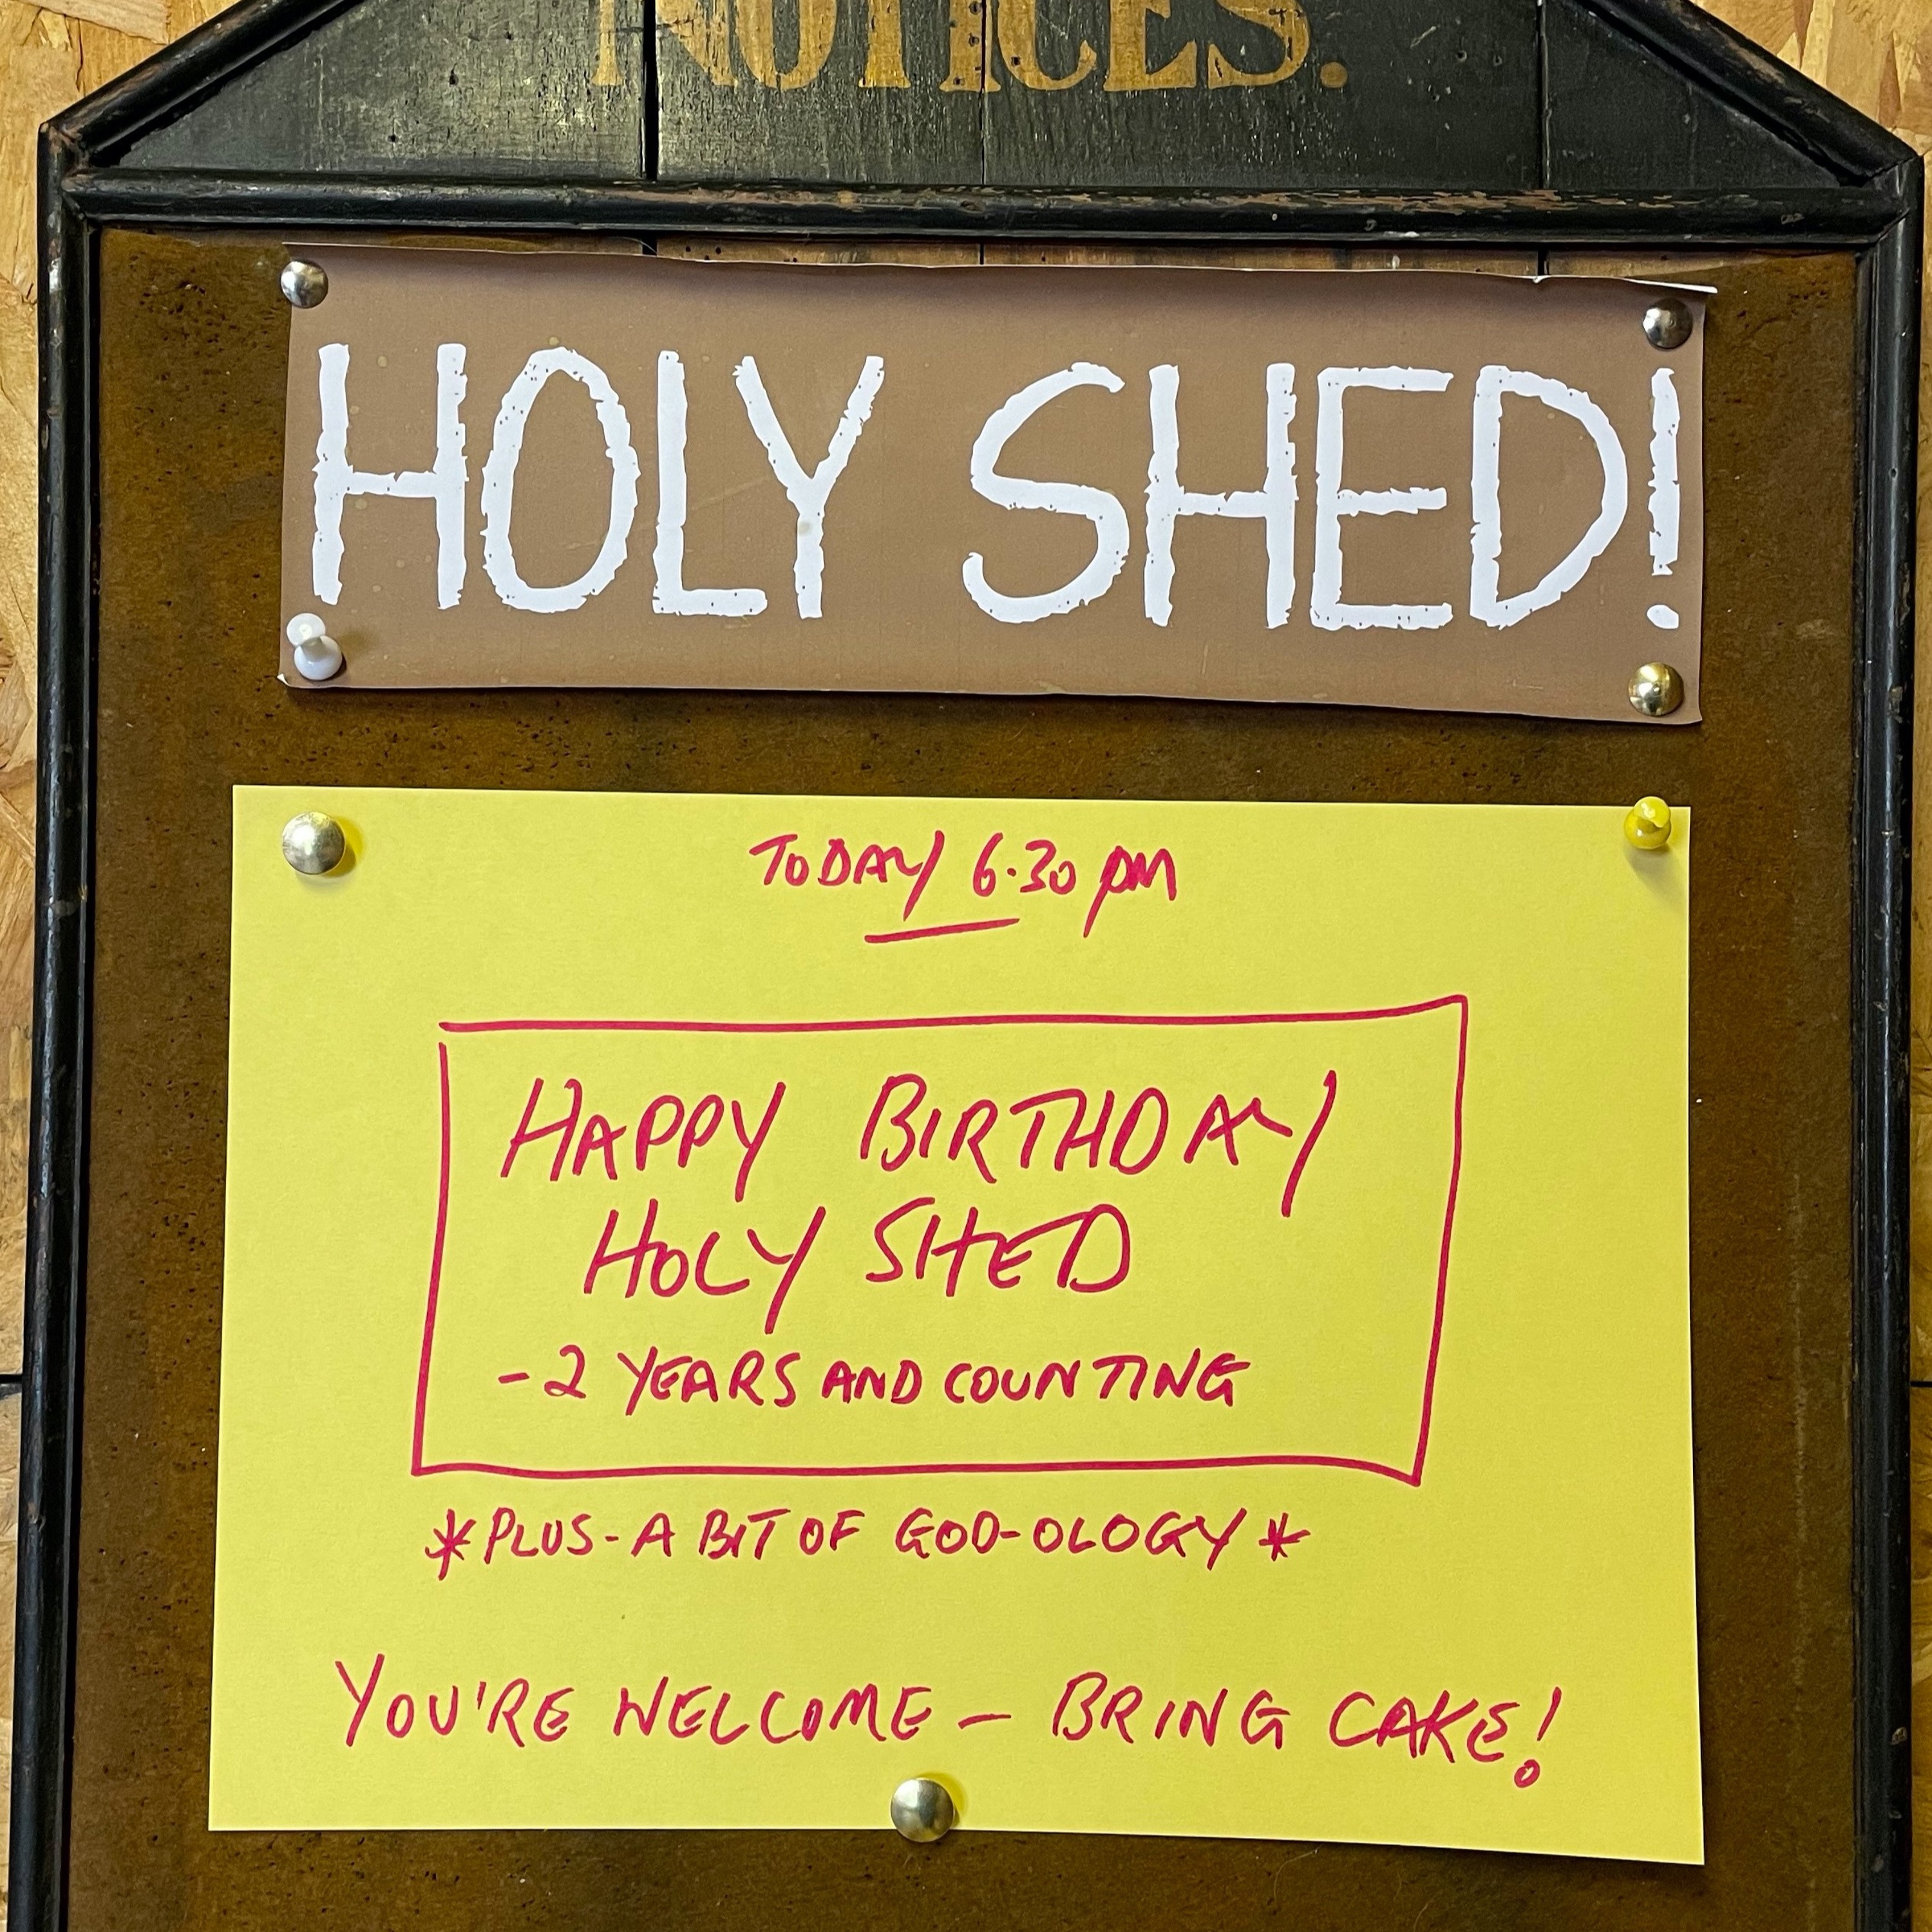 NOTICES.
HOLY SHED!
TODAY 6.30 PM
HAPPY BIRTHDAY
HOLY SHED
- 2 YEARS AND COUNTING
*PLUS - A BIT OF GOD-OLOGY*
YOU'RE WELCOME - BRING CAKE!